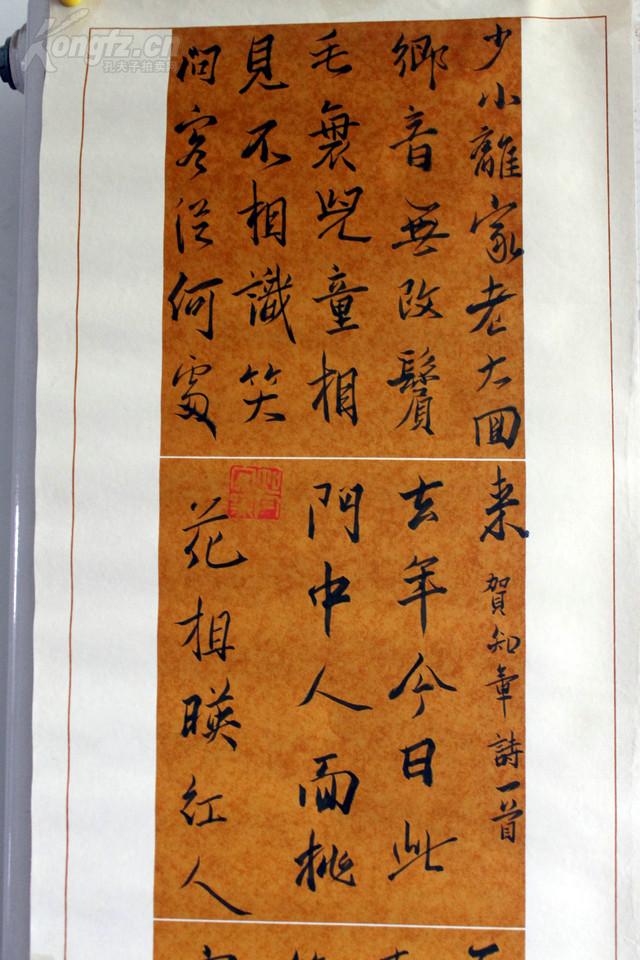 Kongfz.cn
孔夫子拍卖网
少小離家老大囬
鄉音無改鬢
毛衰兒童相
見不相識笑
問客従何處
来
賀知章詩一首
去年今日此
門中人面桃
花相暎紅人